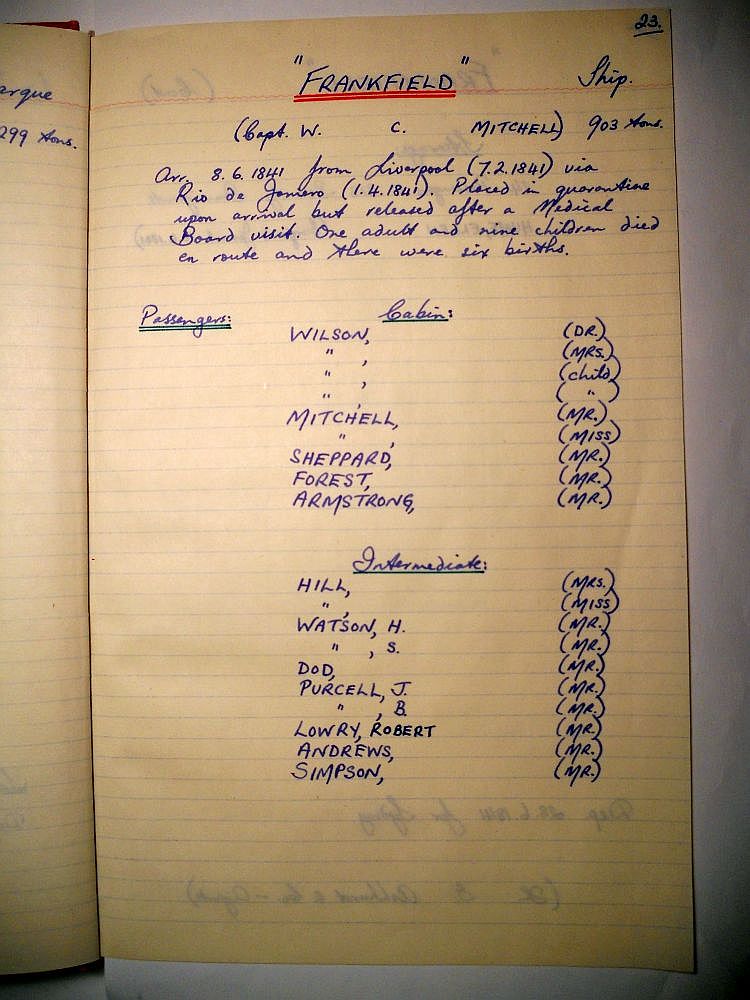 23.
"FRANKFIELD" Ship.
(Capt. W. C. MITCHELL) 903 tons.
Arr. 8.6.1841 from Liverpool (7.2.1841) via
Rio de Janiero (1.4.1841). Placed in quarantine
upon arrival but released after a Medical
Board visit. One adult and nine children died
en route and there were six births.
Passengers: Cabin:
WILSON, (DR.)
" , (MRS.)
" , (child)
" , ( " )
MITCHELL, (MR.)
" , (MISS)
SHEPPARD, (MR.)
FOREST, (MR.)
ARMSTRONG, (MR.)
Intermediate:
HILL, (MRS.)
" , (MISS)
WATSON, H. (MR.)
" , S. (MR.)
DOD, (MR.)
PURCELL, J. (MR.)
" , B. (MR.)
LOWRY, ROBERT (MR.)
ANDREWS, (MR.)
SIMPSON, (MR.)
arque
299 tons.